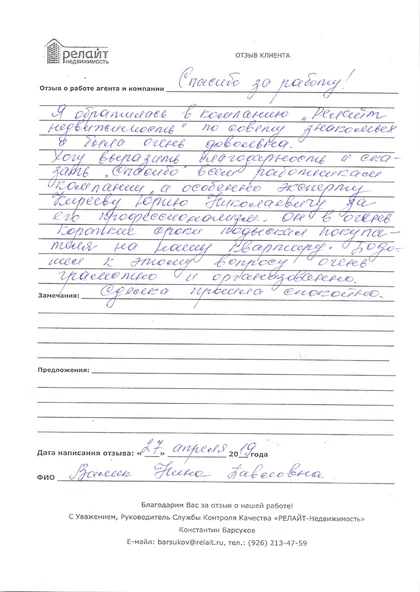 релайт
недвижимость
ОТЗЫВ КЛИЕНТА
Отзыв о работе агента и компании Спасибо за работу!
Я обратилась в компанию „Релайт
недвижимость" по совету знакомых
и была очень довольна.
Хочу выразить благодарность и ска-
зать „Спасибо" всем работникам
компании, а особенно эксперту
Кирееву Юрию Николаевичу за
его профессионализм. Он в очень
короткие сроки подыскал покупа-
теля на нашу квартиру. Подо-
шел к этому вопросу очень
грамотно и организованно.
Замечания: Сделка прошла спокойно.
Предложения:
Дата написания отзыва: «27» апреля 2019года
ФИО Нина Павловна
Благодарим Вас за отзыв о нашей работе!
С Уважением, Руководитель Службы Контроля Качества «РЕЛАЙТ-Недвижимость»
Константин Барсуков
Е-майл: barsukov@relait.ru, тел.: (926) 213-47-59